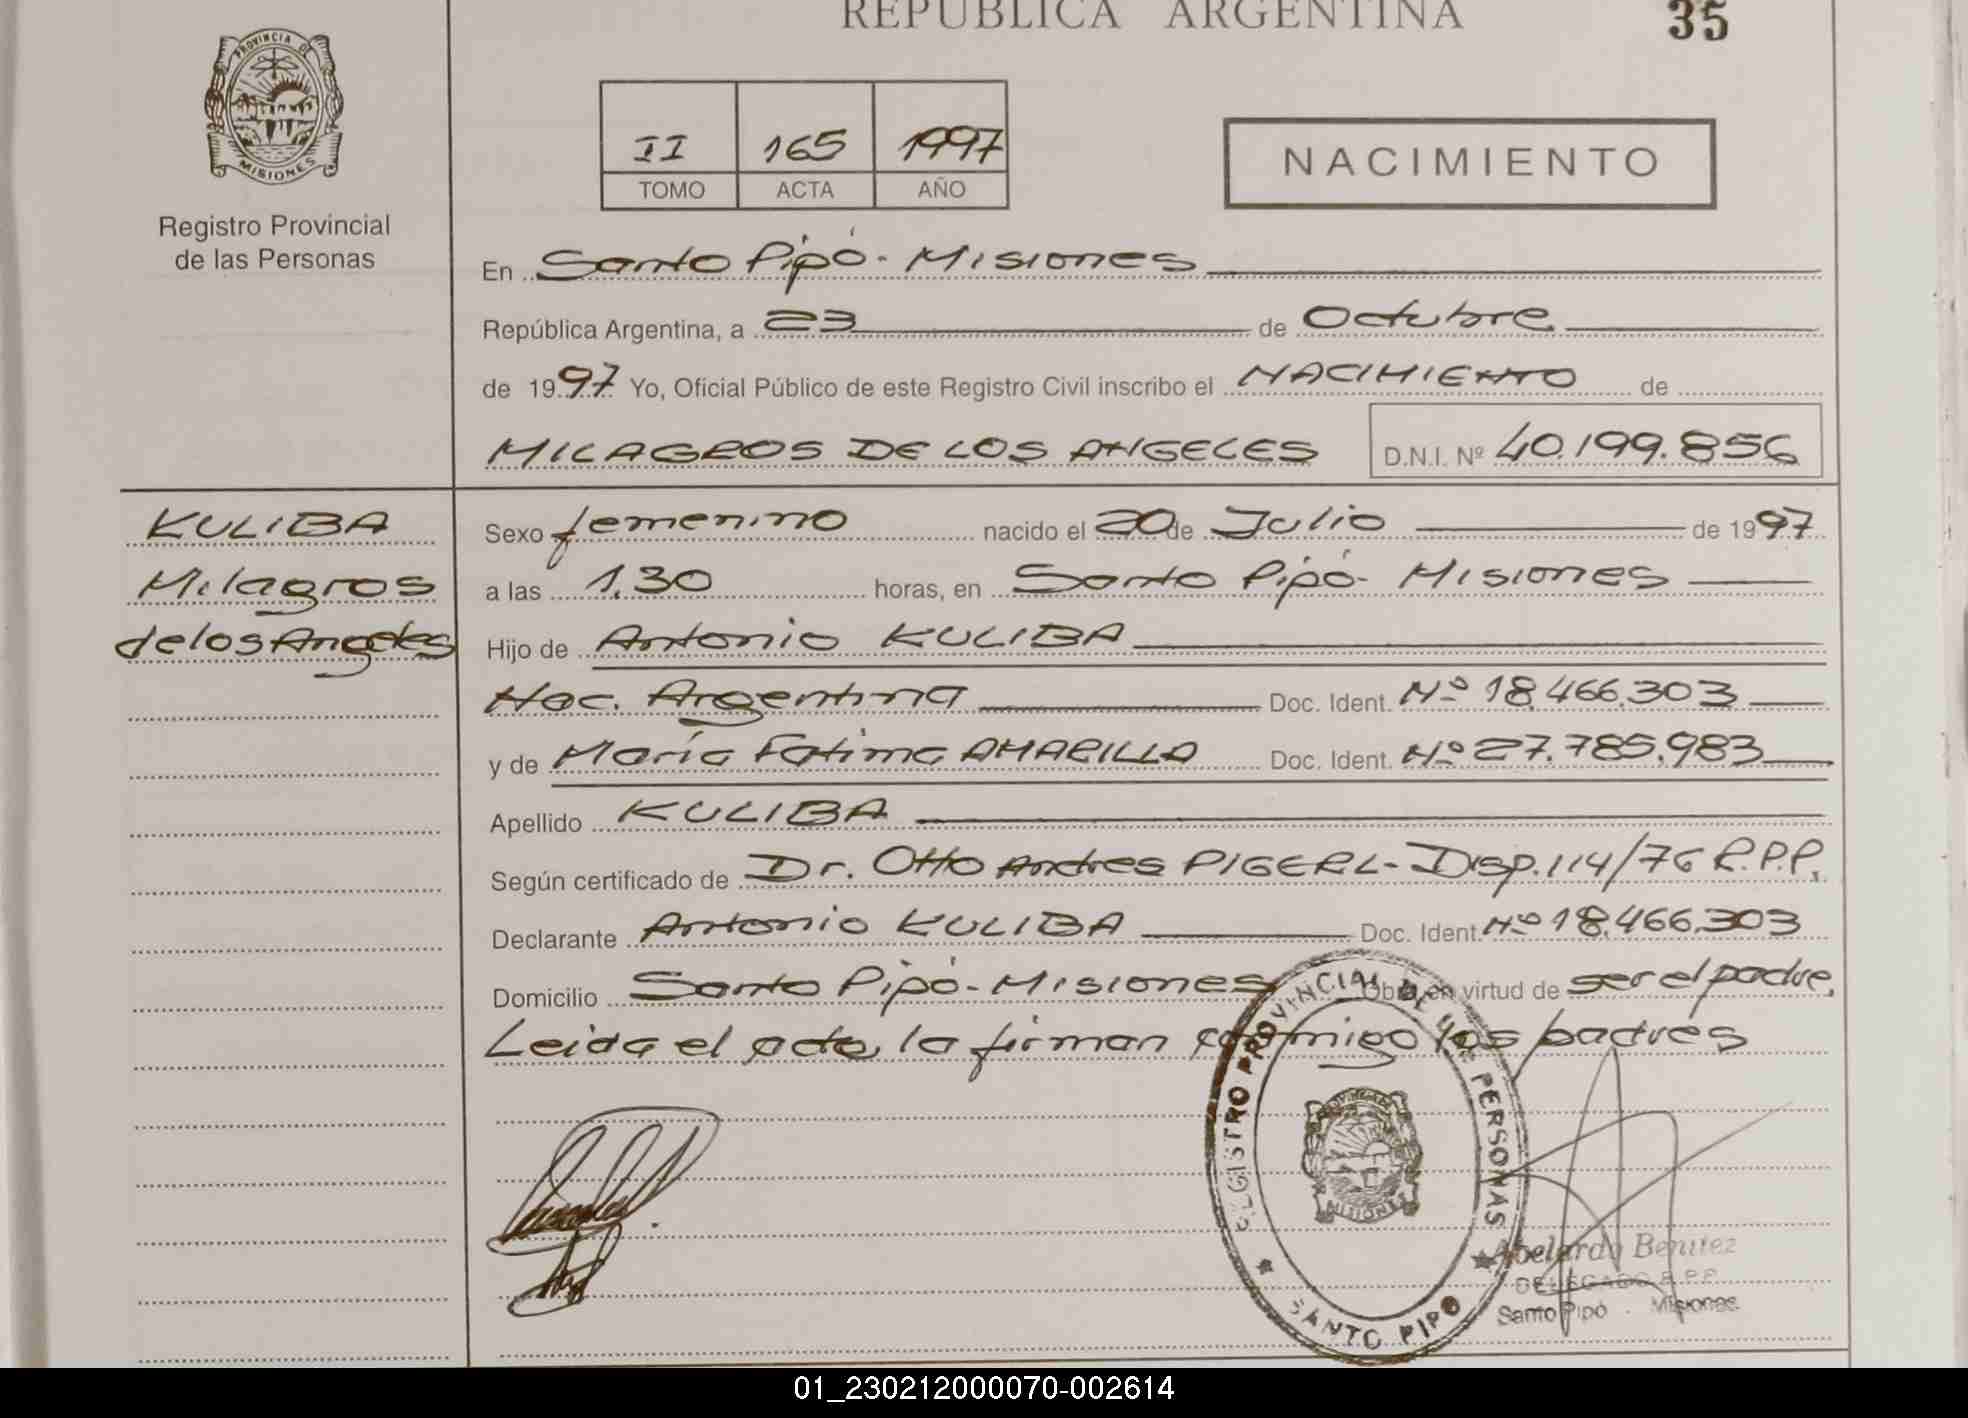 REPUBLICA ARGENTINA
35
PROVINCIA DE
MISIONES
Registro Provincial
de las Personas
II 165 1997
TOMO ACTA AÑO
NACIMIENTO
En Santo Pipó - Misiones
República Argentina, a 23 de Octubre
de 1997 Yo, Oficial Público de este Registro Civil inscribo el NACIMIENTO de
MILAGROS DE LOS ANGELES D.N.I. Nº 40.199.856
KULIBA
Milagros
de los Angeles
Sexo femenino nacido el 20 de Julio de 1997
a las 1.30 horas, en Santo Pipó - Misiones
Hijo de Antonio KULIBA
Nac. Argentina Doc. Ident. Nº 18.466.303
y de María Fatima AMARILLA Doc. Ident. Nº 27.785.983
Apellido KULIBA
Según certificado de Dr. Otto Andres PIGERL - Disp. 114/76 R.P.P.
Declarante Antonio KULIBA Doc. Ident. Nº 18.466.303
Domicilio Santo Pipó - Misiones Obra en virtud de ser el padre.
Leida el acta, la firman conmigo los padres
REGISTRO PROVINCIAL DE LAS PERSONAS
SANTO PIPO
MISIONES
Abelardo Benitez
DELEGADO R.P.P.
Santo Pipó - Misiones
01_230212000070-002614